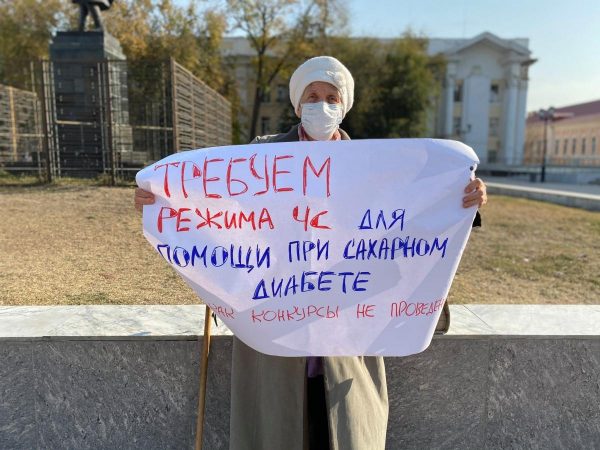 ТРЕБУЕМ
РЕЖИМА ЧС ДЛЯ
ПОМОЩИ ПРИ САХАРНОМ
ДИАБЕТЕ
КОНКУРСЫ НЕ